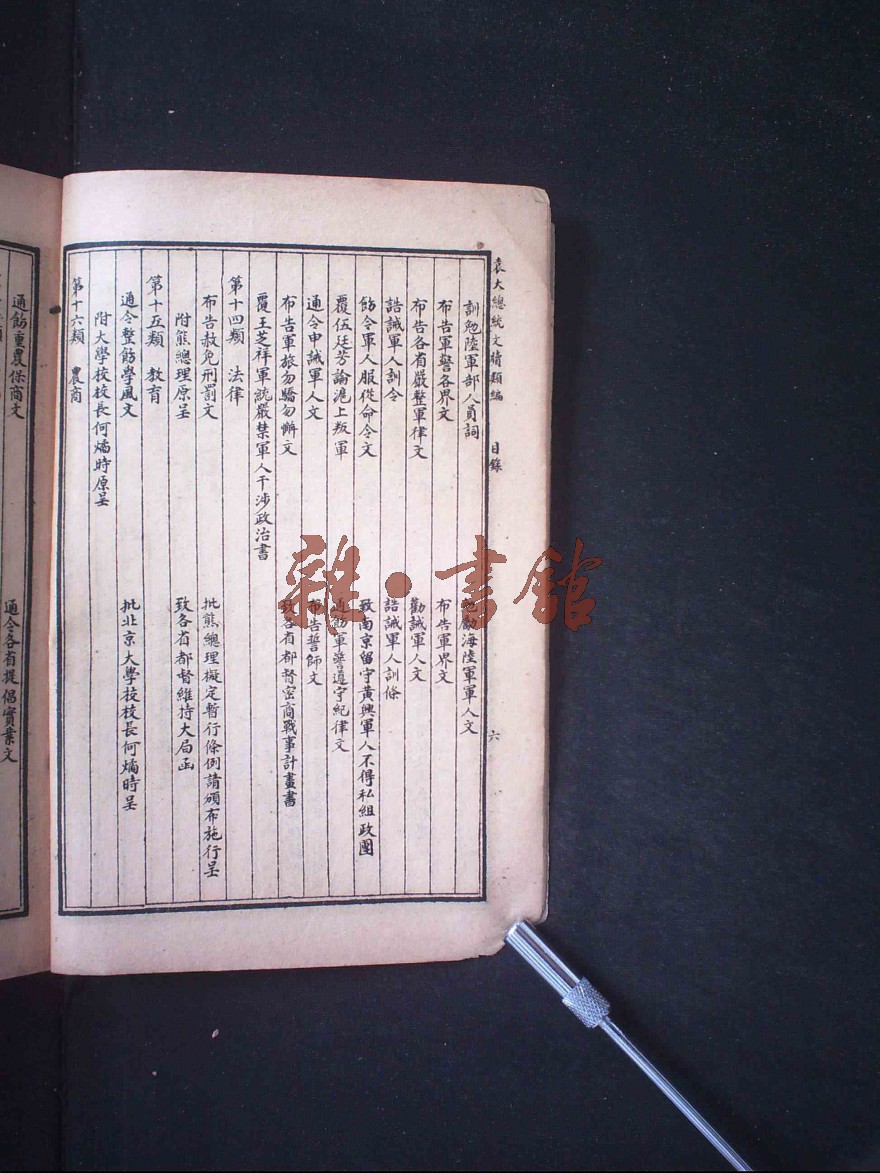 袁大總統文牘類編 目錄 六
訓勉陸軍部人員詞 勉勵海陸軍軍人文
布告軍警各界文 布告軍界文
布告各省嚴整軍律文 勸誡軍人文
誥誡軍人訓令 誥誡軍人訓條
飭令軍人服從命令文 致南京留守黃興軍人不得私組政團
覆伍廷芳論滬上叛軍 通飭軍警遵守紀律文
通令申誡軍人文 布告誓師文
布告軍旅勿驕勿懈文 致各省都督密商戰事計畫書
覆王芝祥軍統嚴禁軍人干涉政治書
第十四類 法律
布告赦免刑罰文 批熊總理擬定暫行條例請頒布施行呈
附熊總理原呈 致各省都督維持大局函
第十五類 教育
通令整飭學風文 批北京大學校校長何燏時呈
附大學校校長何燏時原呈
第十六類 農商
通飭重農保商文 通令各省提倡實業文
雜·書館